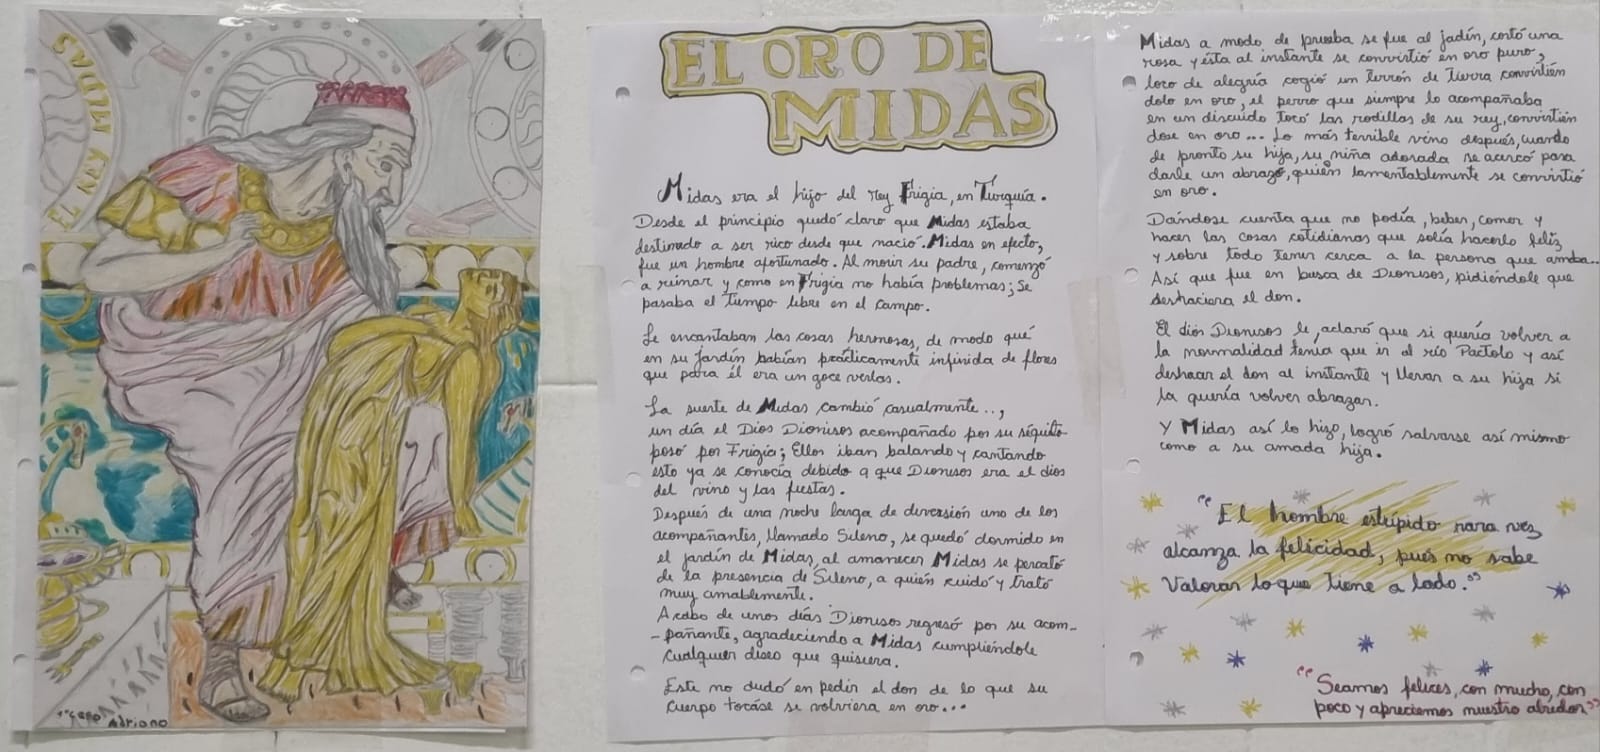 EL REY MIDAS
1º Ceso Adriano
EL ORO DE
MIDAS
Midas era el hijo del rey Frigia, en Turquía.
Desde el principio quedó claro que Midas estaba
destinado a ser rico desde que nació. Midas en efecto,
fue un hombre afortunado. Al morir su padre, comenzó
a reinar y como en Frigia no había problemas; Se
pasaba el tiempo libre en el campo.
Le encantaban las cosas hermosas, de modo qué
en su jardín habían prácticamente infinida de flores
que para él era un goce verlas.
La suerte de Midas cambió casualmente...,
un día el Dios Dionisos acompañado por su séquito
posó por Frigia; Ellos iban balando y cantando
esto ya se conocía debido a que Dionisos era el dios
del vino y las fiestas.
Después de una noche larga de diversión uno de los
acompañantes, llamado Sileno, se quedó dormido en
el jardín de Midas, al amanecer Midas se percató
de la presencia de Sileno, a quién cuidó y trató
muy amablemente.
Acabo de unos días Dionisos regresó por su acom-
-pañante, agradeciendo a Midas cumpliéndole
cualquier diseo que quisiera.
Este no dudó en pedir el don de lo que su
cuerpo tocáse se volviera en oro...
Midas a modo de prueba se fue al jadín, cortó una
rosa y ésta al instante se convirtió en oro puro,
loco de alegría cogió un terrón de tierra convirtién
dolo en oro, el perro que siempre lo acompañaba
en un discuido tocó las rodillas de su rey, convirtién
dose en oro... Lo más terrible vino después, cuando
de pronto su hija, su niña adorada se acercó para
darle un abrazo, quién lamentablemente se convirtió
en oro.
Dándose cuenta que no podía, beber, comer y
hacer las cosas cotidianas que solía hacerlo feliz
y sobre todo tener cerca a la persona que amaba...
Así que fue en busca de Dionisos, pidiéndole que
deshaciera el don.
El dios Dionisos le aclaró que si quería volver a
la normalidad tenía que ir al río Pactolo y así
deshacer el don al instante y llevar a su hija si
la quería volver abrazar.
Y Midas así lo hizo, logró salvarse así mismo
como a su amada hija.
"El hombre estúpido rara vez
alcanza la felicidad, pues no sabe
valorar lo que tiene a lado."
"Seamos felices, con mucho, con
poco y apreciemos nuestro alredor"